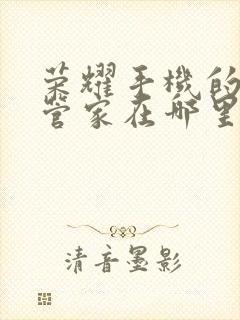 荣耀手機的
管家在哪里
清音墨影